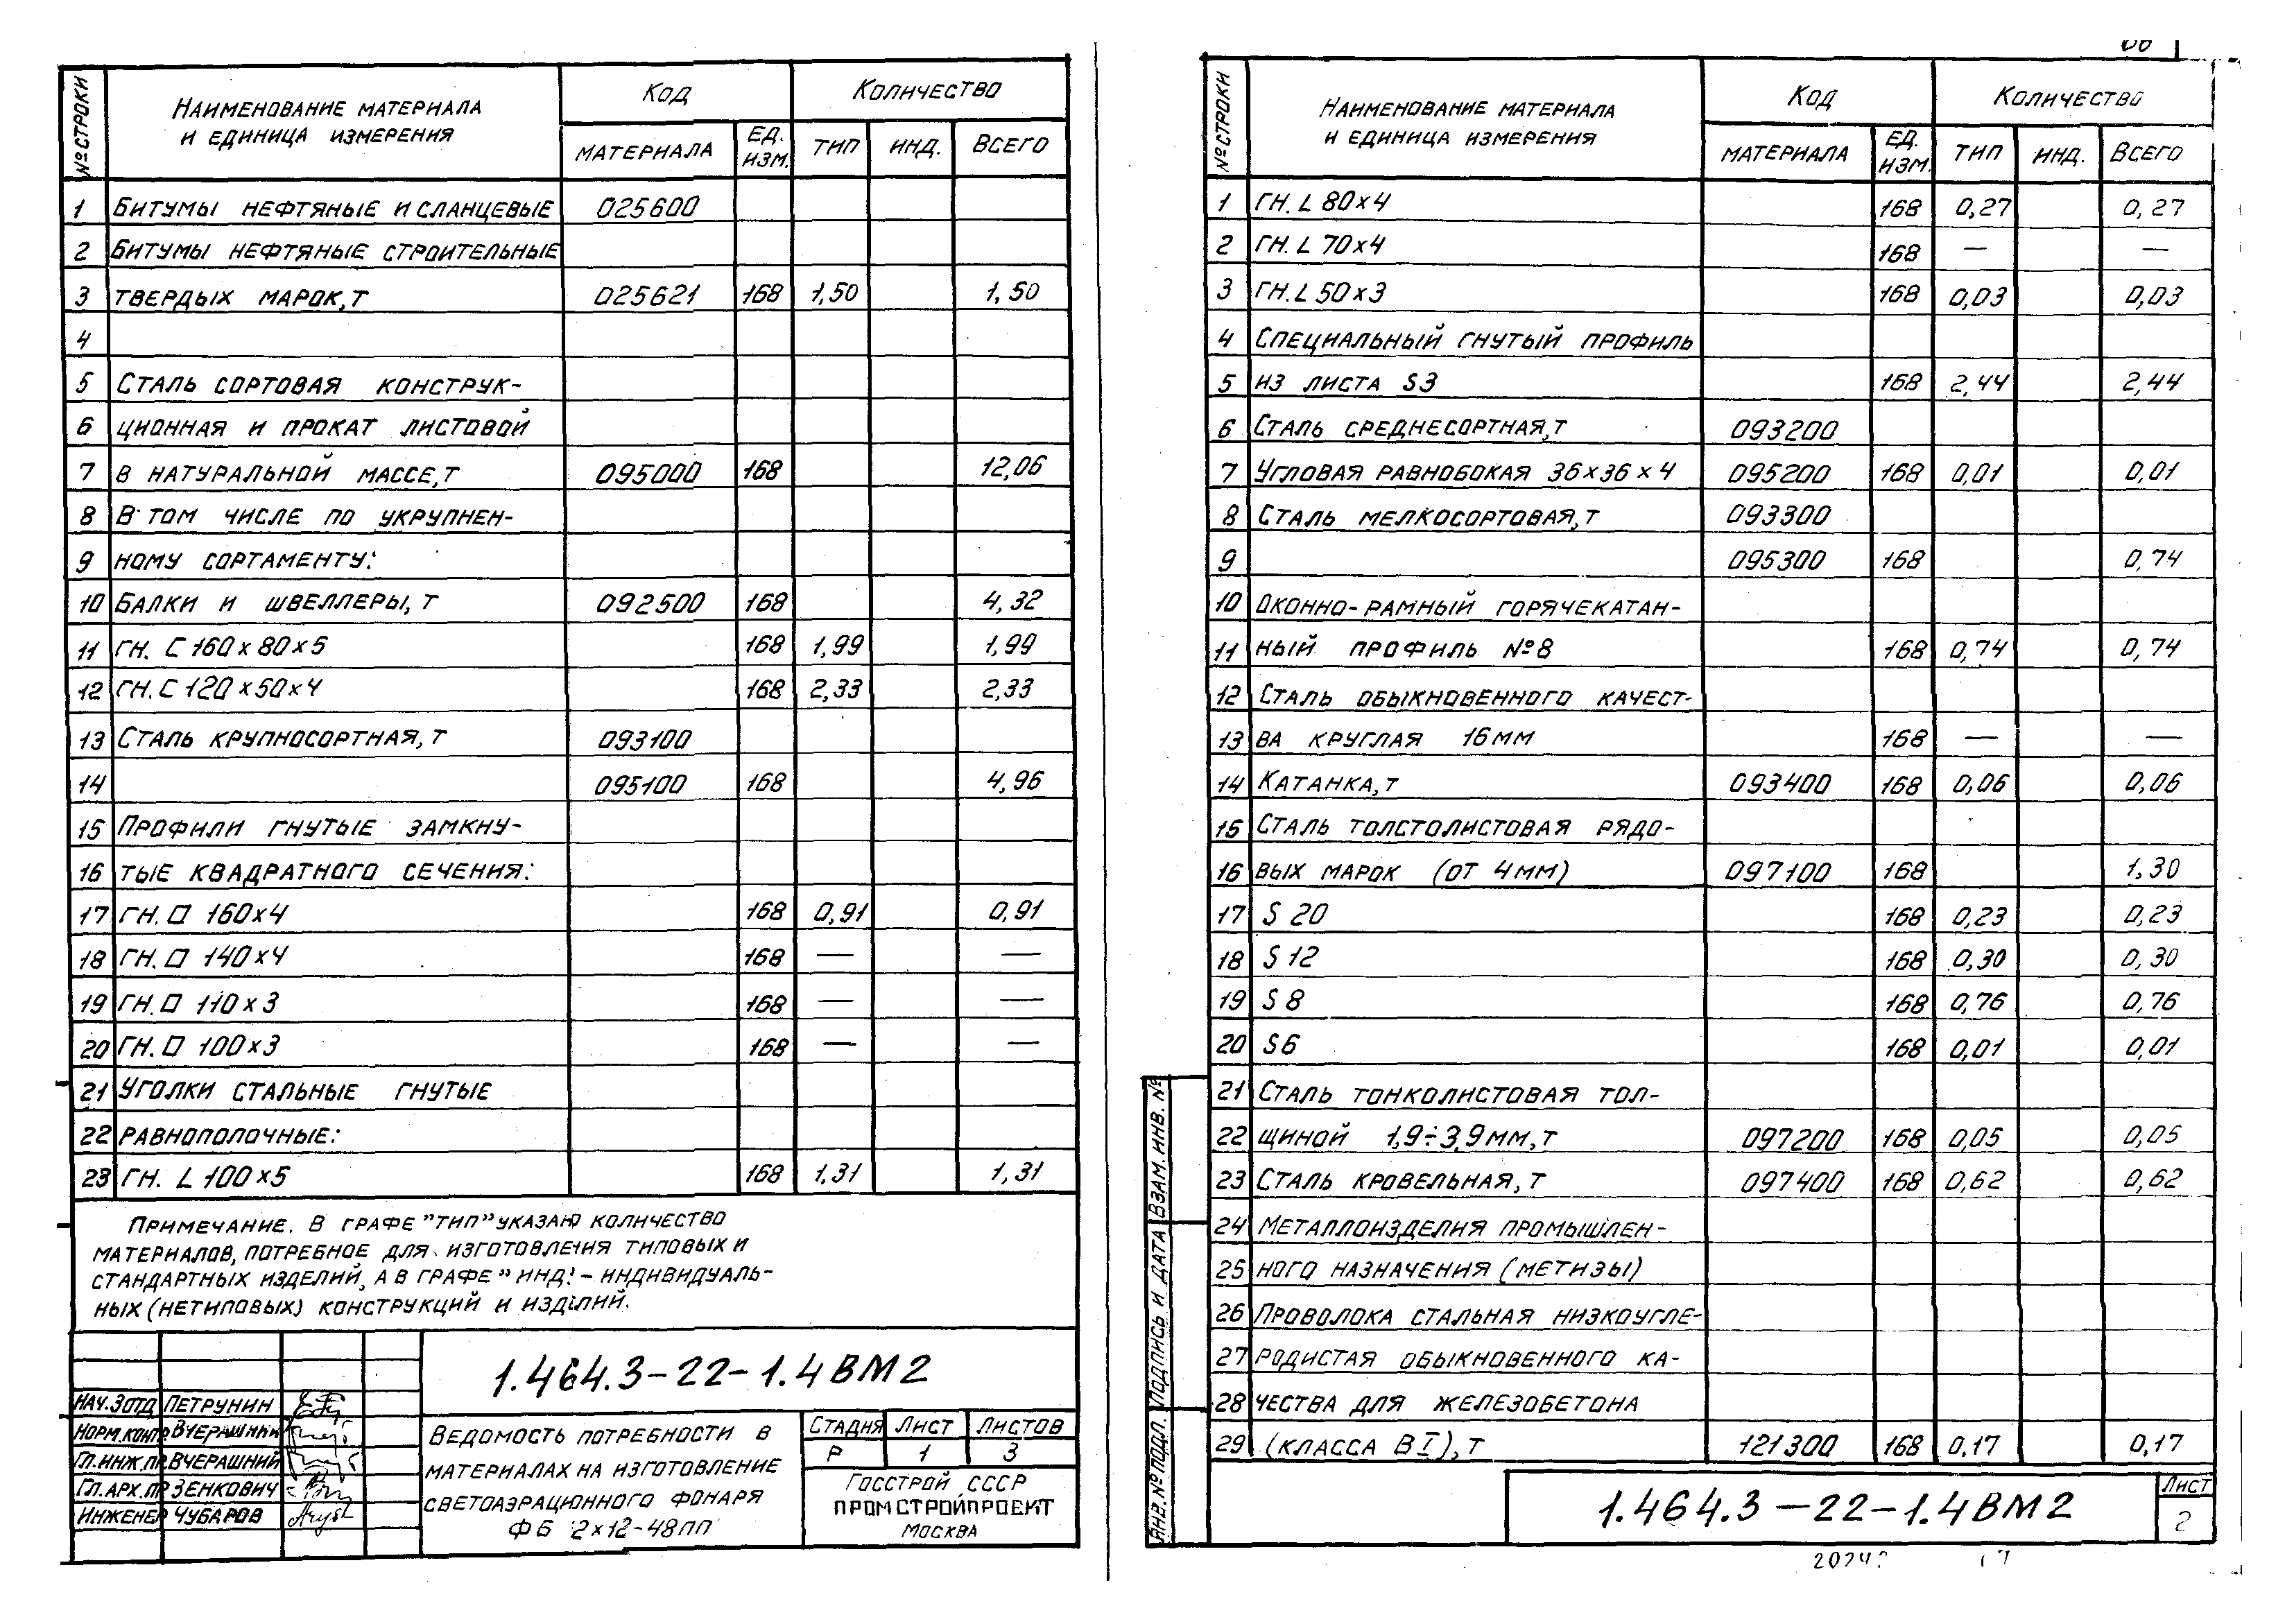 № СТРОКИ
НАИМЕНОВАНИЕ МАТЕРИАЛА
И ЕДИНИЦА ИЗМЕРЕНИЯ
КОД
КОЛИЧЕСТВО
МАТЕРИАЛА
ЕД.
ИЗМ.
ТИП
ИНД.
ВСЕГО
1 БИТУМЫ НЕФТЯНЫЕ И СЛАНЦЕВЫЕ 025600
2 БИТУМЫ НЕФТЯНЫЕ СТРОИТЕЛЬНЫЕ
3 ТВЕРДЫХ МАРОК, Т 025621 168 1,50 1,50
4
5 СТАЛЬ СОРТОВАЯ КОНСТРУК-
6 ЦИОННАЯ И ПРОКАТ ЛИСТОВОЙ
7 В НАТУРАЛЬНОЙ МАССЕ, Т 095000 168 12,06
8 В ТОМ ЧИСЛЕ ПО УКРУПНЕН-
9 НОМУ СОРТАМЕНТУ:
10 БАЛКИ И ШВЕЛЛЕРЫ, Т 092500 168 4,32
11 ГН. С 160×80×5 168 1,99 1,99
12 ГН. С 120×50×4 168 2,33 2,33
13 СТАЛЬ КРУПНОСОРТНАЯ, Т 093100
14 095100 168 4,96
15 ПРОФИЛИ ГНУТЫЕ ЗАМКНУ-
16 ТЫЕ КВАДРАТНОГО СЕЧЕНИЯ:
17 ГН. □ 160×4 168 0,91 0,91
18 ГН. □ 140×4 168 — —
19 ГН. □ 110×3 168 — —
20 ГН. □ 100×3 168 — —
21 УГОЛКИ СТАЛЬНЫЕ ГНУТЫЕ
22 РАВНОПОЛОЧНЫЕ:
23 ГН. L 100×5 168 1,31 1,31
ПРИМЕЧАНИЕ. В ГРАФЕ "ТИП" УКАЗАНО КОЛИЧЕСТВО
МАТЕРИАЛОВ, ПОТРЕБНОЕ ДЛЯ ИЗГОТОВЛЕНИЯ ТИПОВЫХ И
СТАНДАРТНЫХ ИЗДЕЛИЙ, А В ГРАФЕ "ИНД." – ИНДИВИДУАЛЬ-
НЫХ (НЕТИПОВЫХ) КОНСТРУКЦИЙ И ИЗДЕЛИЙ.
1.464.3-22-1.4ВМ2
НАЧ.ЗОТД ПЕТРУНИН
НОРМ.КОНТР ВЧЕРАШНИЙ
ГЛ.ИНЖ.ПР ВЧЕРАШНИЙ
ГЛ.АРХ.ПР ЗЕНКОВИЧ
ИНЖЕНЕР ЧУБАРОВ
ВЕДОМОСТЬ ПОТРЕБНОСТИ В
МАТЕРИАЛАХ НА ИЗГОТОВЛЕНИЕ
СВЕТОАЭРАЦИОННОГО ФОНАРЯ
ФБ 2×12-48ПП
СТАДИЯ ЛИСТ ЛИСТОВ
Р 1 3
ГОССТРОЙ СССР
ПРОМСТРОЙПРОЕКТ
МОСКВА
№ СТРОКИ
НАИМЕНОВАНИЕ МАТЕРИАЛА
И ЕДИНИЦА ИЗМЕРЕНИЯ
КОД
КОЛИЧЕСТВО
МАТЕРИАЛА
ЕД.
ИЗМ.
ТИП
ИНД.
ВСЕГО
1 ГН. L 80×4 168 0,27 0,27
2 ГН. L 70×4 168 — —
3 ГН. L 50×3 168 0,03 0,03
4 СПЕЦИАЛЬНЫЙ ГНУТЫЙ ПРОФИЛЬ
5 ИЗ ЛИСТА S3 168 2,44 2,44
6 СТАЛЬ СРЕДНЕСОРТНАЯ, Т 093200
7 УГЛОВАЯ РАВНОБОКАЯ 36×36×4 095200 168 0,01 0,01
8 СТАЛЬ МЕЛКОСОРТОВАЯ, Т 093300
9 095300 168 0,74
10 ОКОННО-РАМНЫЙ ГОРЯЧЕКАТАН-
11 НЫЙ ПРОФИЛЬ №8 168 0,74 0,74
12 СТАЛЬ ОБЫКНОВЕННОГО КАЧЕСТ-
13 ВА КРУГЛАЯ 16ММ 168 — —
14 КАТАНКА, Т 093400 168 0,06 0,06
15 СТАЛЬ ТОЛСТОЛИСТОВАЯ РЯДО-
16 ВЫХ МАРОК (ОТ 4ММ) 097100 168 1,30
17 S 20 168 0,23 0,23
18 S 12 168 0,30 0,30
19 S 8 168 0,76 0,76
20 S6 168 0,01 0,01
21 СТАЛЬ ТОНКОЛИСТОВАЯ ТОЛ-
22 ЩИНОЙ 1,9÷3,9ММ, Т 097200 168 0,05 0,05
23 СТАЛЬ КРОВЕЛЬНАЯ, Т 097400 168 0,62 0,62
24 МЕТАЛЛОИЗДЕЛИЯ ПРОМЫШЛЕН-
25 НОГО НАЗНАЧЕНИЯ (МЕТИЗЫ)
26 ПРОВОЛОКА СТАЛЬНАЯ НИЗКОУГЛЕ-
27 РОДИСТАЯ ОБЫКНОВЕННОГО КА-
28 ЧЕСТВА ДЛЯ ЖЕЛЕЗОБЕТОНА
29 (КЛАССА ВI), Т 121300 168 0,17 0,17
ИНВ.№ ПОДЛ. ПОДПИСЬ И ДАТА ВЗАМ. ИНВ. №
1.464.3-22-1.4ВМ2
ЛИСТ
2